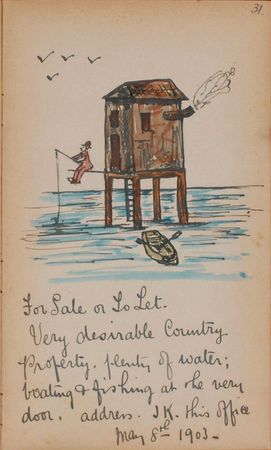 31
For Sale or To Let.
Very desirable Country
Property. plenty of water;
boating & fishing at the very
door. address. J K. this office
May 8th 1903-